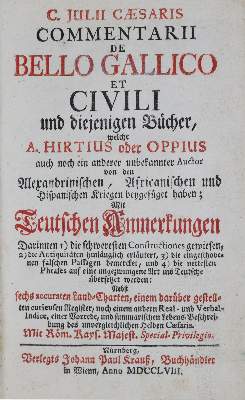 C. JULII CÆSARIS
COMMENTARII
DE
BELLO GALLICO
ET
CIVILI
und diejenigen Bücher,
welche
A. HIRTIUS oder OPPIUS
auch noch ein anderer unbekannter Auctor
von den
Alexandrinischen, Africanischen und
Hispanischen Kriegen beygefüget haben;
Mit
Teutschen Anmerkungen
Darinnen 1) die schweresten Constructiones gewiesen,
2) die Antiquitäten hinlänglich erläutert, 3) die eingeschobe-
nen falschen Passagen bemerket, und 4) die nettesten
Phrases auf eine ungezwungene Art ins Teutsche
übersetzet werden:
Nebst
sechs accuraten Land-Charten, einem darüber gestell-
ten curieusen Register, noch einem andern Real- und Verbal-
Indice, einer Vorrede, und summarischen Lebens-Beschrei-
bung des unvergleichlichen Helden Cæsaris.
Mit Röm. Kays. Majest. Special-Privilegio.
Nürnberg,
Verlegts Johann Paul Krauß, Buchhändler
in Wienn, Anno MDCCLVIII.